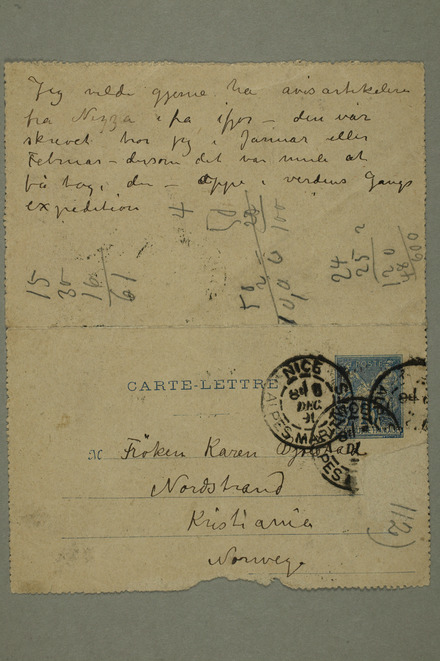 Jeg vilde gjerne ha avisartikelen
fra Nizza ifra ifjor – den var
skrevet tror jeg i Januar eller
Februar – dersom det var mulig at
få tag i den – oppe i verdens Gangs
expedition
4
50
15
30
16
61
24
25
2
120
48
600
100
CARTE-LETTRE
NICE
8
DEC
91
ALPES MARITIMES
M Fröken Karen
Nordstrand
Kristiania
Norweg.
112)